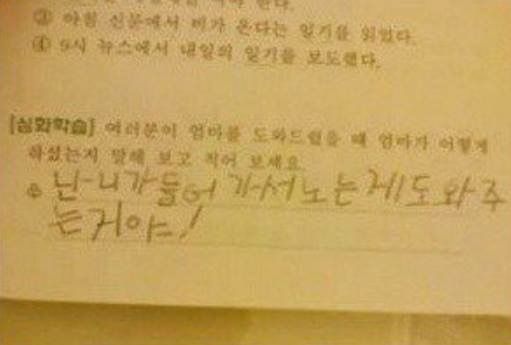 ③ 아침 신문에서 비가 온다는 일기를 읽었다.
④ 9시 뉴스에서 내일의 일기를 보도했다.
[심화학습] 여러분이 엄마를 도와드렸을 때 엄마가 어떻게
하셨는지 말해 보고 적어 보세요
난 니가 들어 가서 노는게 도와주
는거야!